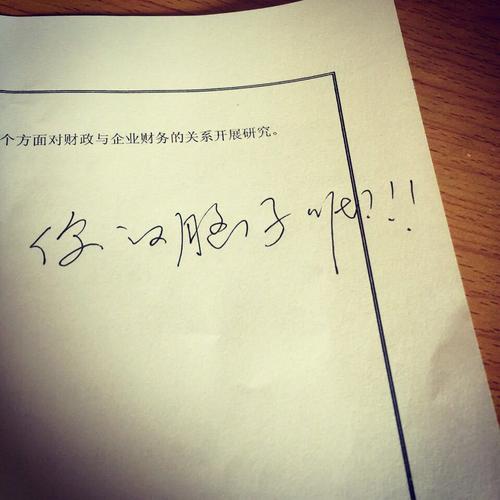 个方面对财政与企业财务的关系开展研究。
你的脑子呢?!!